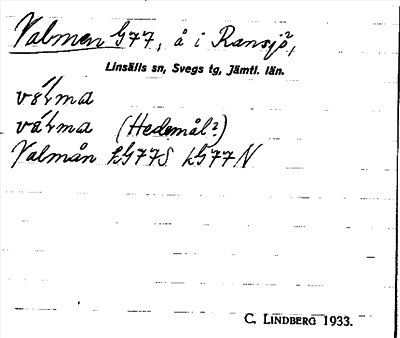 Valmen G77, å i Ransjö,
Linsälls sn, Svegs tg, Jämtl. län.
va
va (Hedemål?)
Valmån G77S G77N
C. LINDBERG 1933.